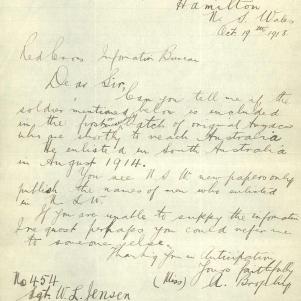 Hamilton
N. S. Wales
Oct 19th 1918
Red Cross Information Bureau
Dear Sir,
Can you tell me if the
soldier mentioned below is included
in the first batch of original Anzacs
who are shortly to reach Australia
He enlisted in South Australia
in August 1914.
You see N S W newspapers only
publish the names of men who enlisted
in N. S. W.
If you are unable to supply the information
I request perhaps you could refer me
to someone else.
Thanking you in Anticipation
Yours faithfully
(Miss) A. Brophy
No 454
Sgt. W. L. Jensen